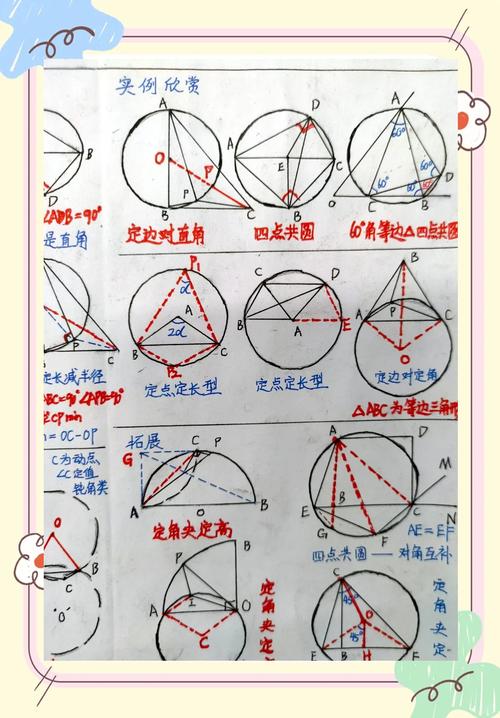 实例欣赏
A
O
P
P
B
C
D
A
E
C
B
A
60°
60°
60°
60°
60°
D
O
C
B
B
D
∠ADB=90°
是直角
定边对直角
四点共圆
60°角等边△四点共圆
P1
α
A
2α
B
C
P2
C
D
B
A
E
B
A
P
C
O
P
C
定长减半径
∠ABC=90° ∠APB=90°
CPmin
=OC-OP
定点定长型
定点定长型
定边对定角
△ABC为等边三角形
C为动点
∠C定值
钝角类
拓展
G
C
P
A
O
B
定角夹定高
A
D
M
E
B
C
G
F
N
AE=EF
四点共圆——对角互补
O
C
B
"O"
B
P
A
I
O
C
定角夹定
C
45°
O
45°
E
B
H
F
定角夹定